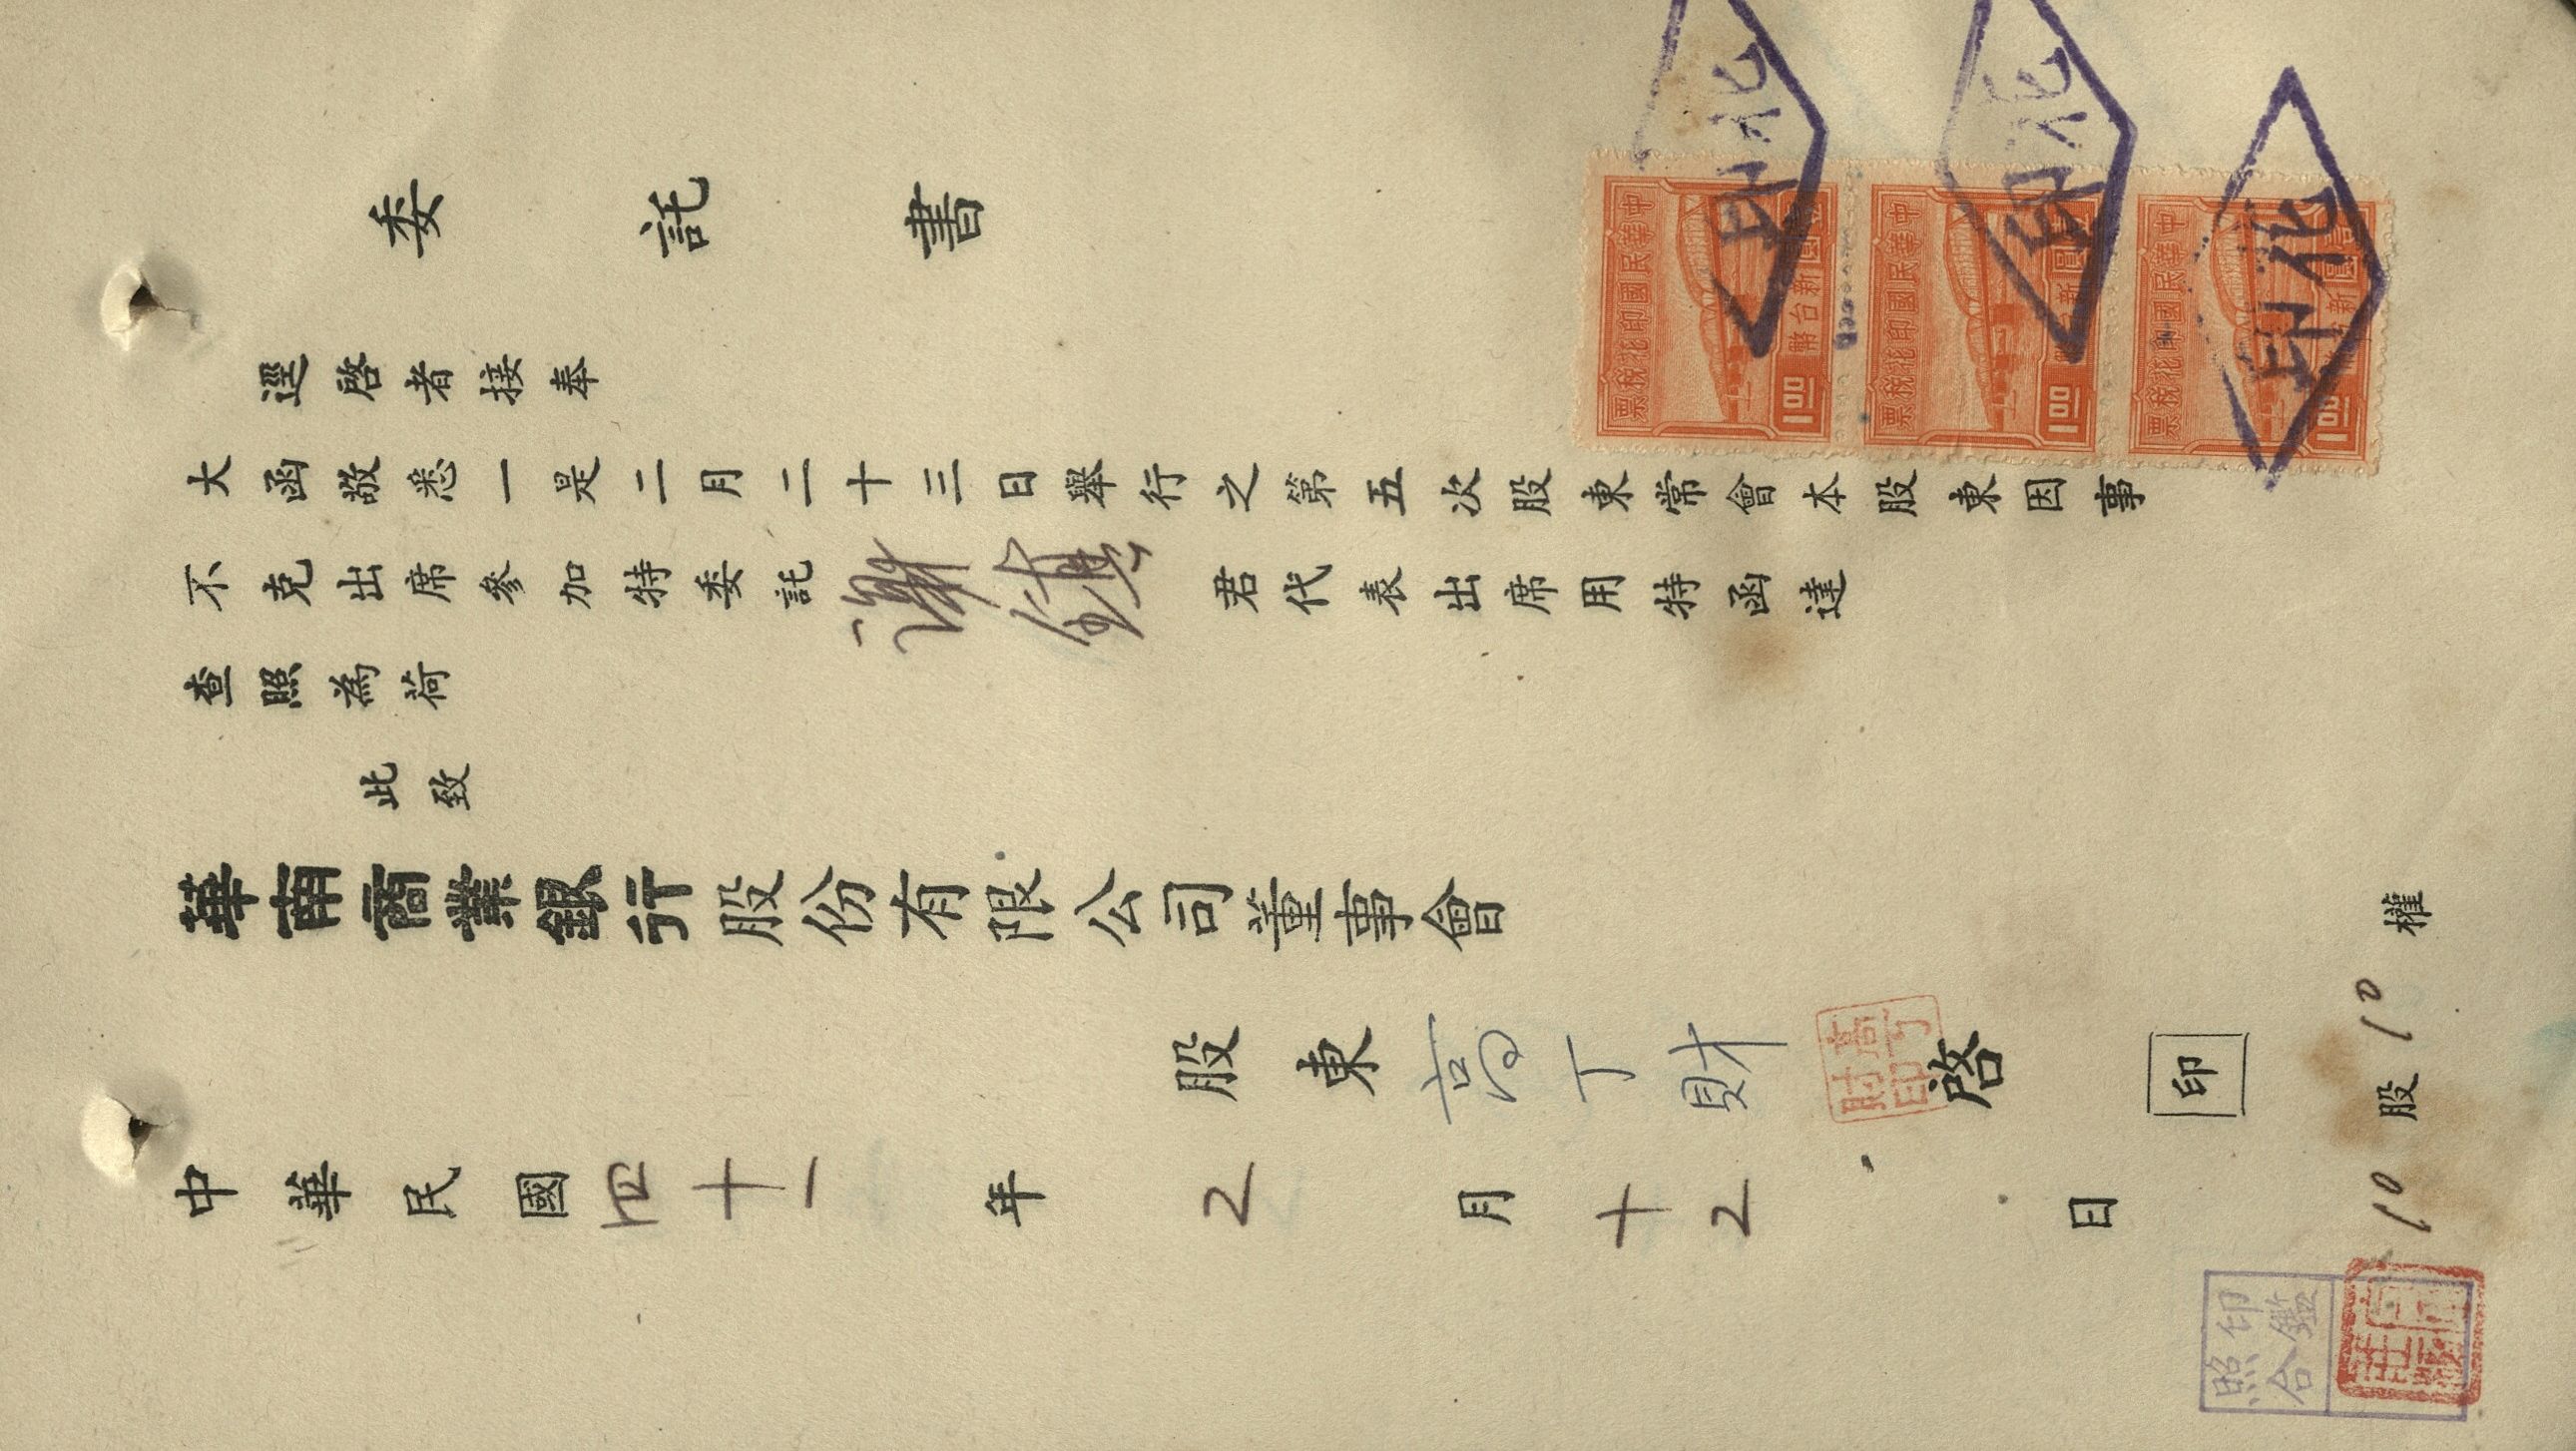 委託書
逕啓者接奉
大函敬悉一是二月二十三日舉行之第五次股東常會本股東因事
不克出席參加特委託謝鎮君代表出席用特函達
查照為荷
此致
華南商業銀行股份有限公司董事會
股東高丁財啓 印
高丁財印
中華民國四十一年2月十2日
10股10權
印鑑照合
中華民國印花稅票
新台幣 圓
1.00
中華民國印花稅票
圓新
1.00
中華民國印花稅票
壹圓新
1.00
印花
印花
印花